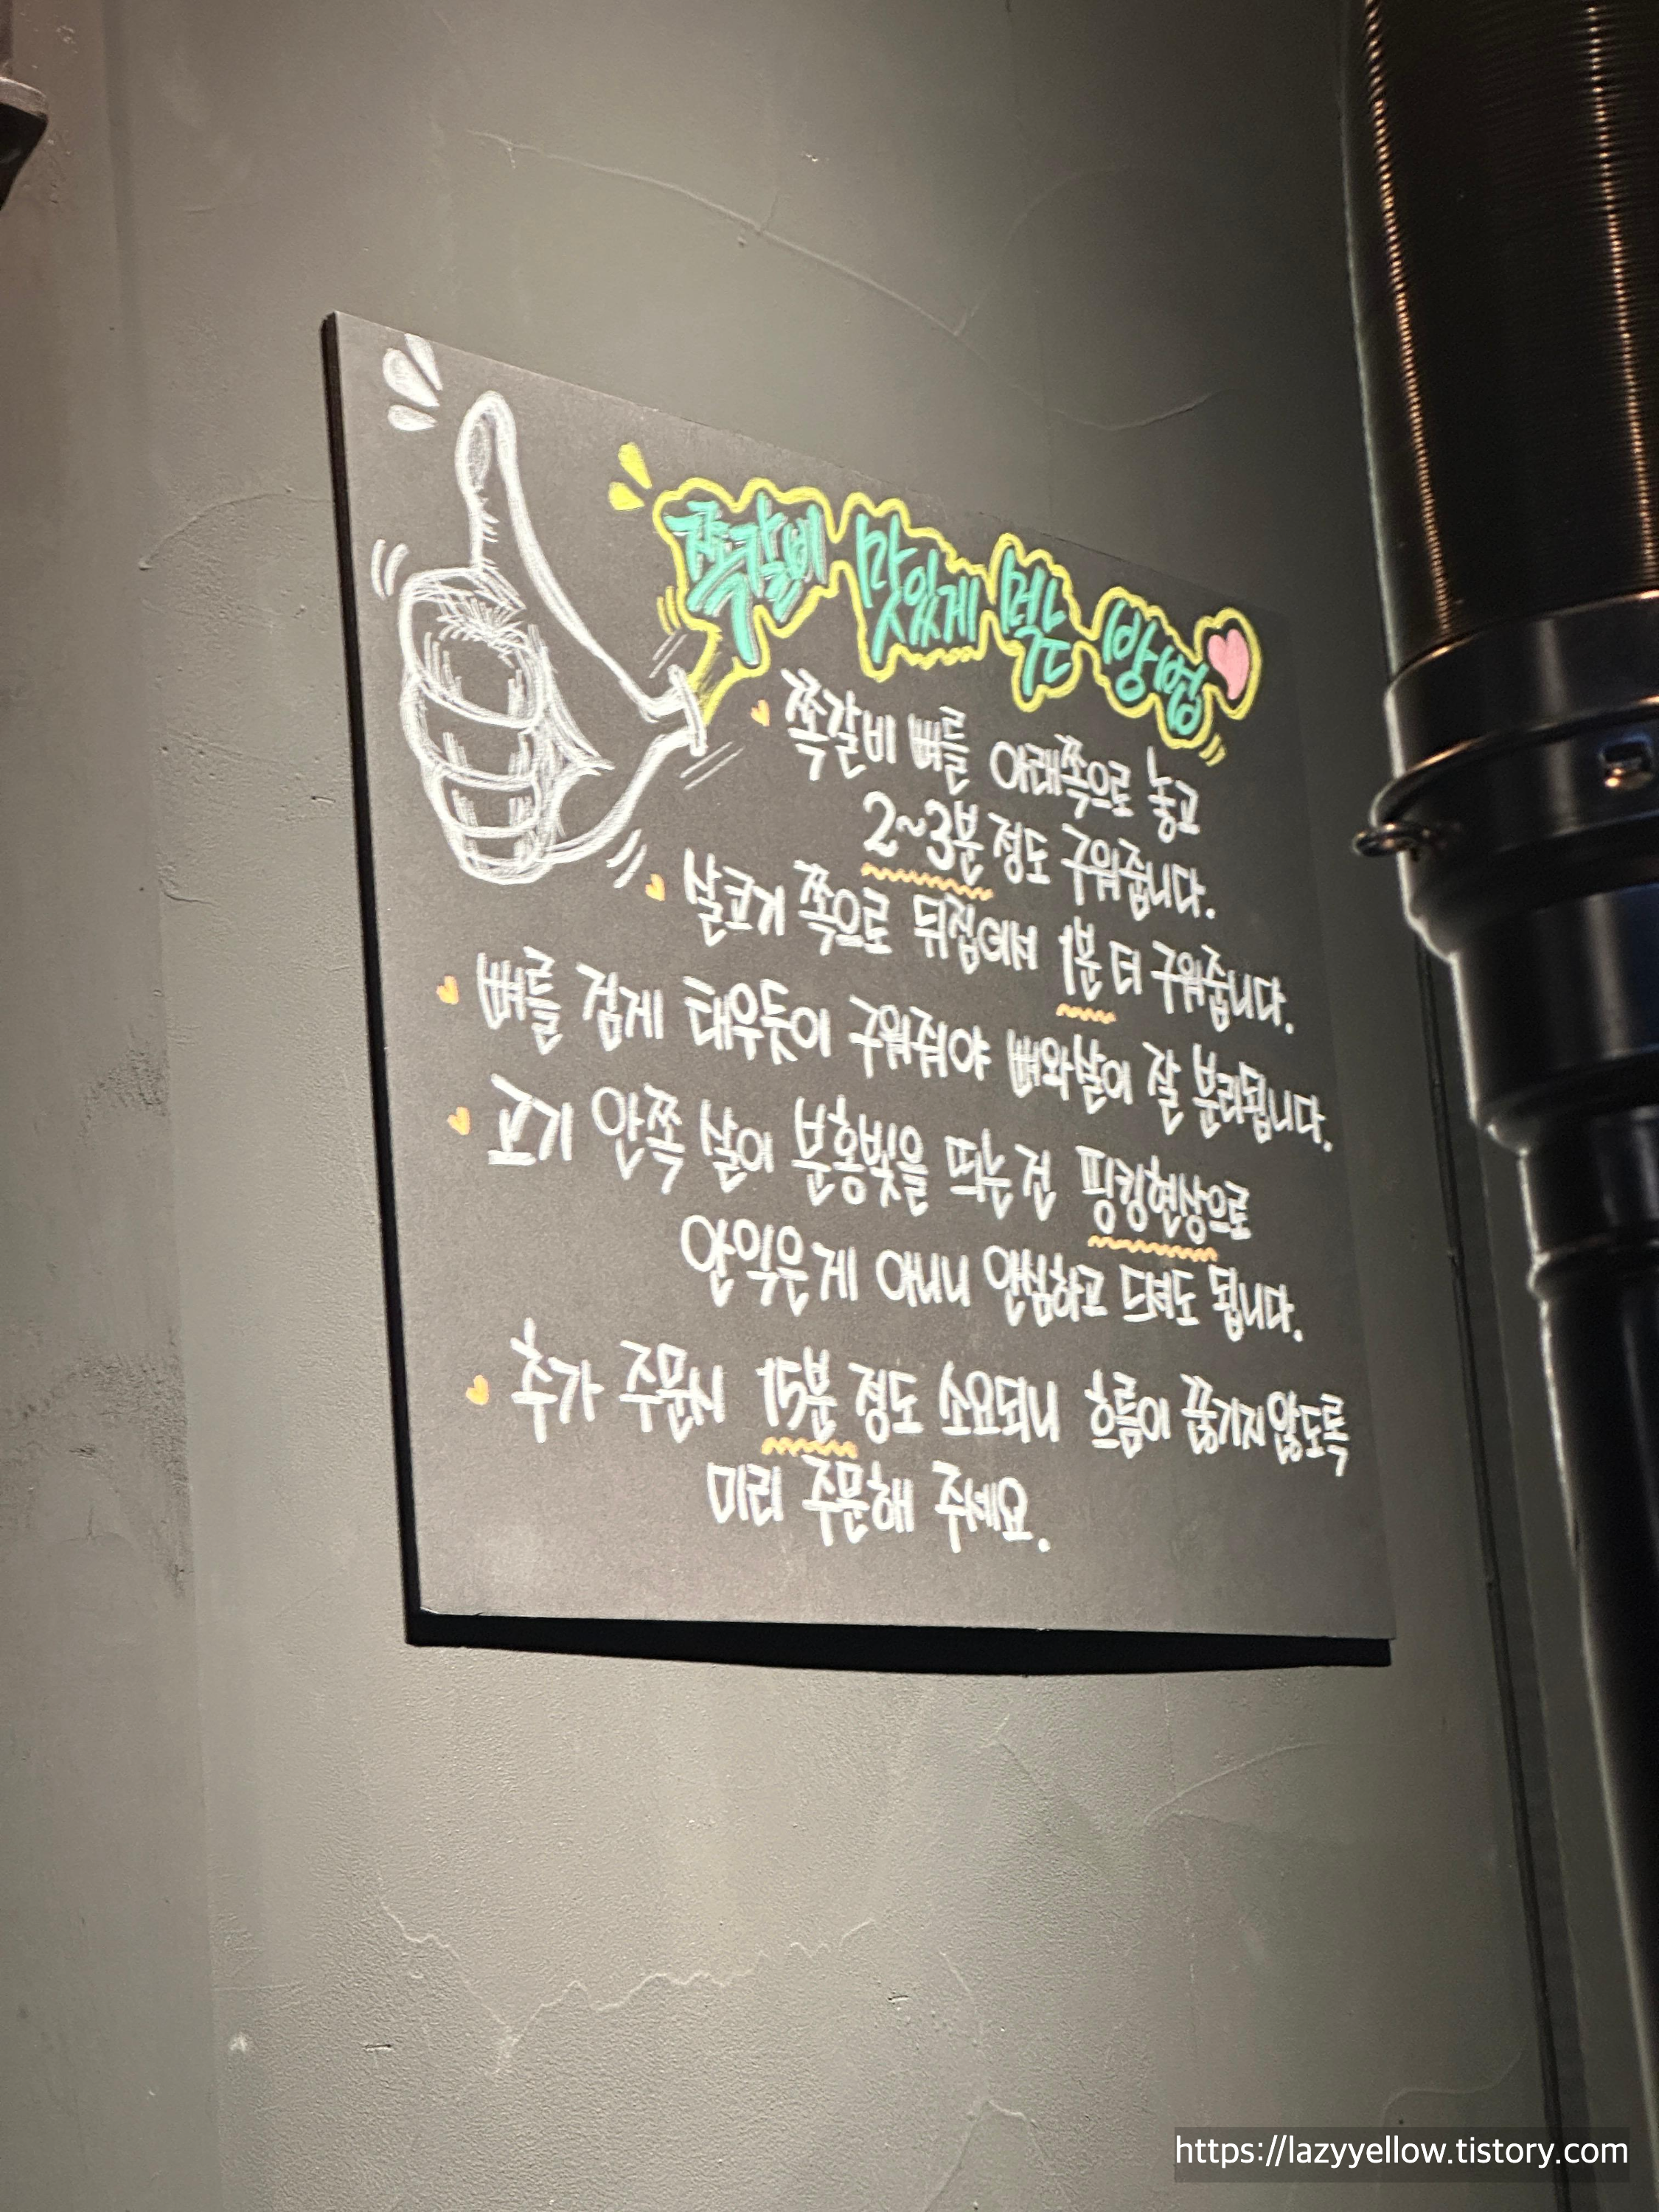 쪽갈비 맛있게 먹는 방법
쪽갈비 뼈를 아래쪽으로 놓고
2~3분 정도 구워줍니다.
살코기 쪽으로 뒤집어서 1분 더 구워줍니다.
뼈를 검게 태우듯이 구워줘야 뼈와살이 잘 분리됩니다.
고기 안쪽 살이 분홍빛을 띄는건 핑킹현상으로
안익은게 아니니 안심하고 드셔도 됩니다.
추가 주문시 15분 정도 소요되니 흐름이 끊기지않도록
미리 주문해 주세요.
https://lazyyellow.tistory.com